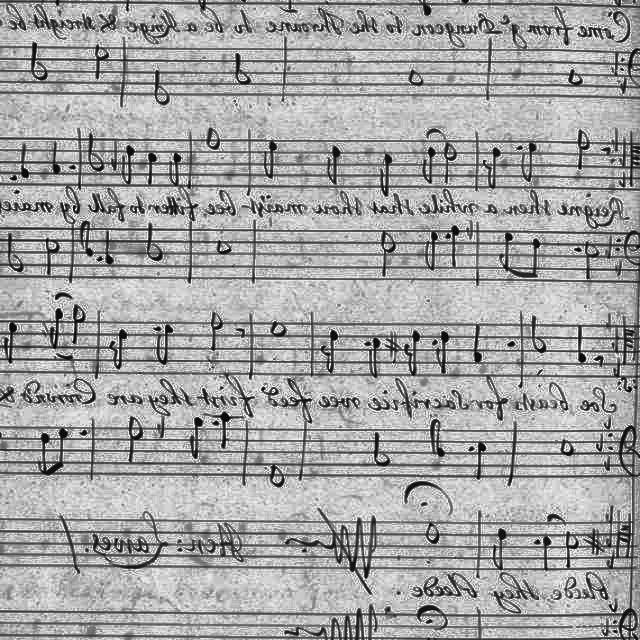 Come from yᵉ Dungeon to the Throane to be a Kinge & streight be
Reigne then a while that thou maist bee fitter to fall by maie
Soe beasts for Sacrifice wee feed first they are Crownd &
Hen: Lawes.
bleede, they bleede.